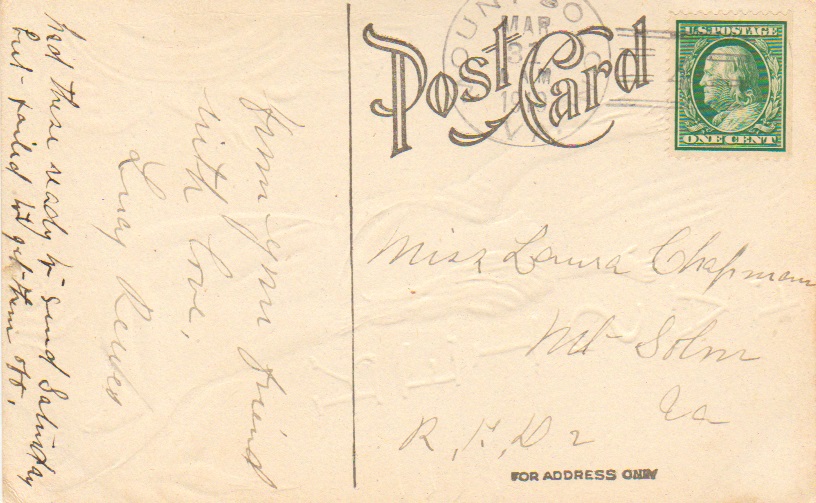 Had these ready to send Saturday
but failed to get them off.
from your friend
with love,
Lucy
Post Card
MAR
31
U.S. POSTAGE
ONE CENT
Miss Laura Chapman
Mt Solon
Va
R, F, D 2
FOR ADDRESS ONLY